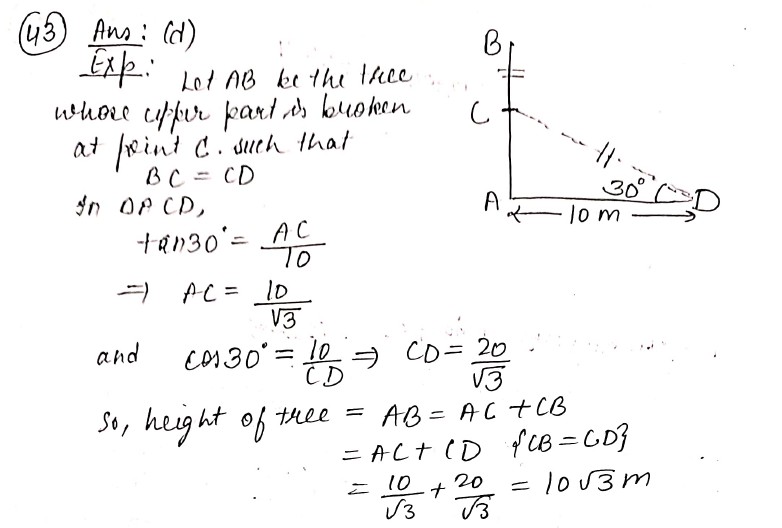 (43) Ans: (d)
Exp: Let AB be the tree
whose upper part is broken
at point C. such that
BC = CD
In ΔACD,
tan30° = AC/10
⇒ AC = 10/√3
and cos30° = 10/CD ⇒ CD = 20/√3
So, height of tree = AB = AC + CB
= AC + CD {CB = CD}
= 10/√3 + 20/√3 = 10√3 m
B
C
30°
A
D
10 m